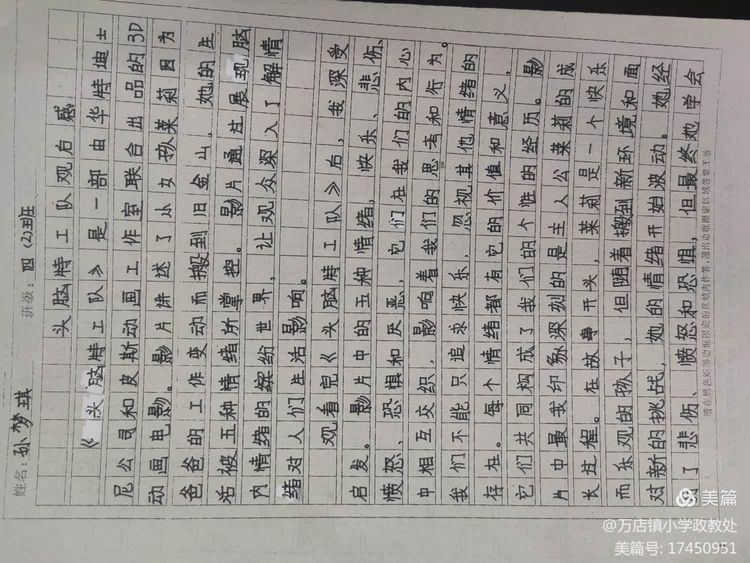 姓名：孙梦琪 班级：四（2）班
头脑特工队观后感
《头脑特工队》是一部由华特迪士
尼公司和皮斯动画工作室联合出品的3D
动画电影。影片讲述了小女孩莱莉因为
爸爸的工作变动而搬到旧金山，她的生
活被五种情绪所掌控。影片通过展现脑
内情绪的缤纷世界，让观众深入了解情
绪对人们生活影响。
观看完《头脑特工队》后，我深受
启发。影片中的五种情绪，快乐、悲伤、
愤怒、恐惧和厌恶，它们在我们的内心
中相互交织，影响着我们的思考和行为。
我们不能只追求快乐，忽视其他情绪的
存在。每个情绪都有它的价值和意义，
它们共同构成了我们的个性的经历。影
片中最我印象深刻的是主人公莱莉的成
长过程。在故事开头，莱莉是一个快乐
而乐观的孩子，但随着搬到新环境和面
对新的挑战，她的情绪开始波动。她经
了悲伤、愤怒和恐惧，但最终她学会
请在黑色矩形边框限定的区域内作答，超出边框限定区域答案无效
美篇
@万店镇小学政教处
美篇号: 17450951